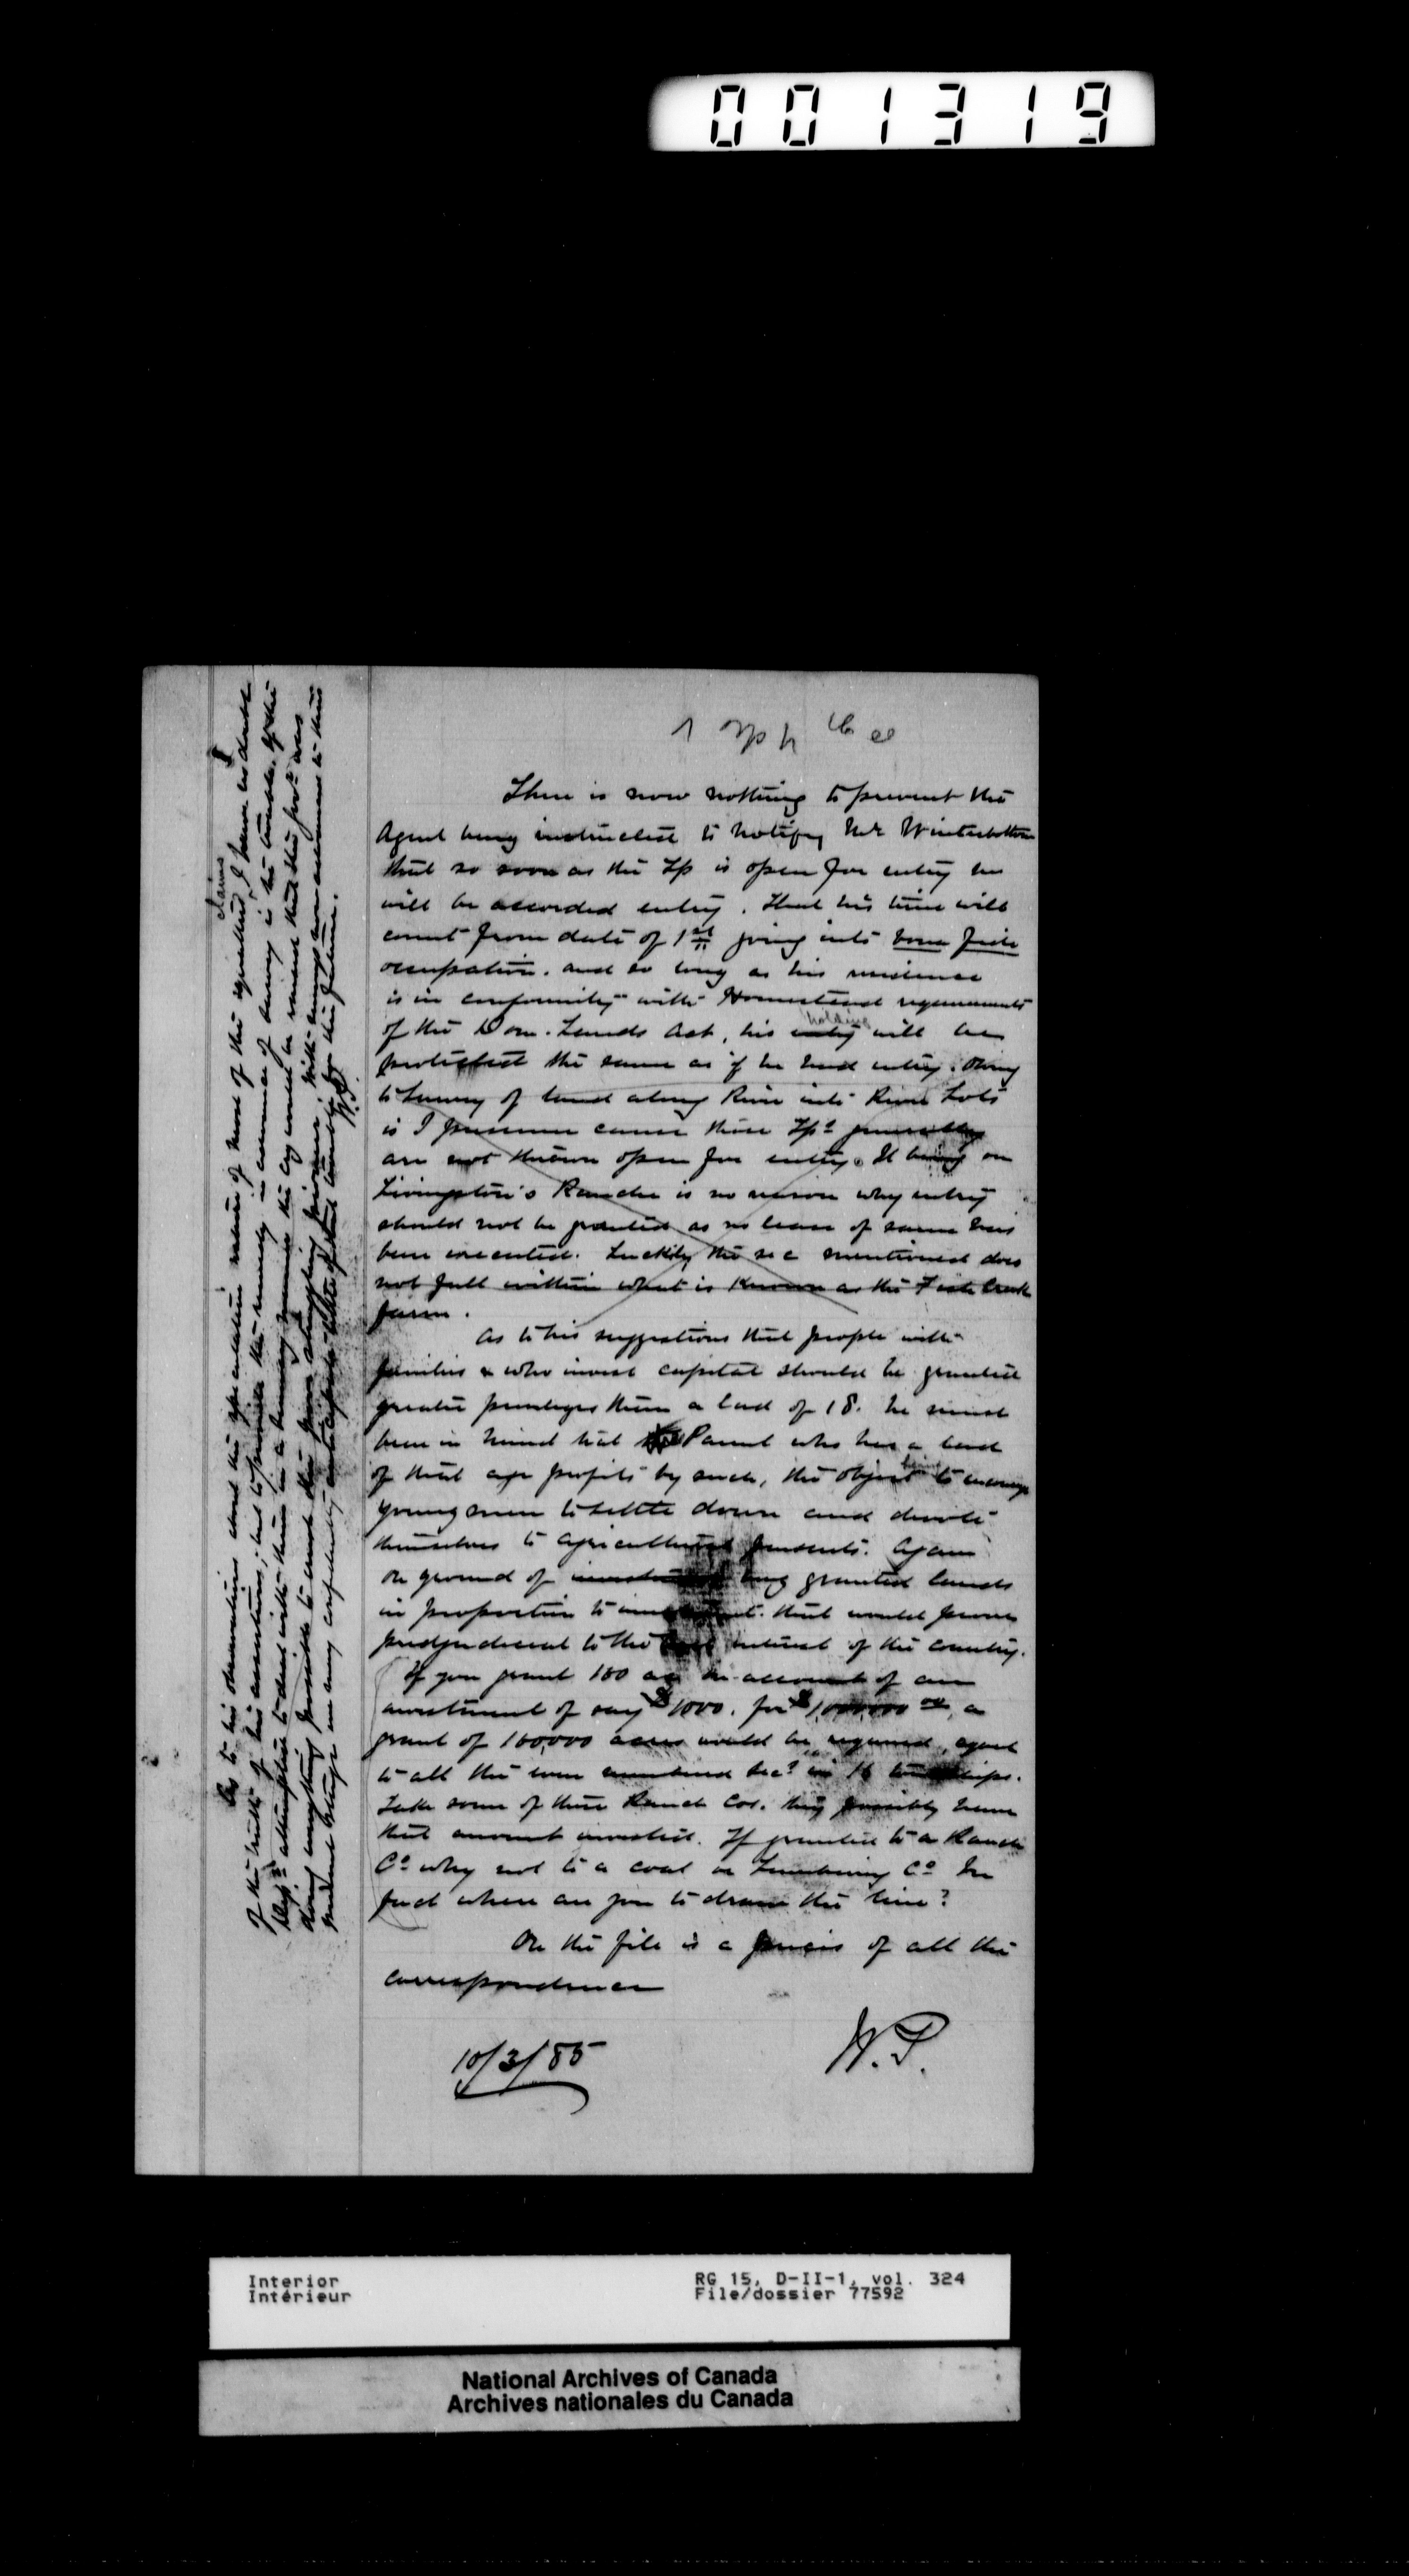 001319
There is now nothing to prevent the
Agent being instructed to notify Mr Winterbottom
that so soon as the Tp is open for entry he
will be accorded entry. That his time will
count from date of 1st going into bona fide
occupation. and so long as his residence
is in conformity with Homestead requirements
of the Dom. Lands Act, his entry holding will be
protected the same as if he had entry. Owing
to survey of land along River into River Lots
is I presume cause these Tps generally
are not thrown open for entry. It being on
Livingston's Ranche is no reason why entry
should not be granted as no lease of same has
been executed. Luckily the sec mentioned does
not fall within what is known as the Fish Creek
farm.
As to his suggestions that people with
families & who invest capital should be granted
greater privileges than a lad of 18. he must
bear in mind that Parent who has a lad
of that age profits by such, the object being to encourage
young men to settle down and devote
themselves to agricultural pursuits. Again
on ground of being granted lands
in proportion to investment. that would prove
prejudicial to the interest of the country.
If you grant 160 acs on account of an
investment of say $1000. for $1,000,000 00, a
grant of 160,000 acres would be required, equal
to all the even numbered Secs in 16 townships.
Take some of these Ranch Cos. they possibly have
that amount invested. If granted to a Ranche
Co why not to a coal or Lumbering Co In
fact where are you to draw the line?
On the file is a precis of all the
correspondence
10/3/85
W.P.
As to his observations about the speculative nature of most of the squatters claims, I have no doubt
of the truth of his assertions; but to provide the remedy in economy of is the trouble. If the
Dept attempted to deal with them in a manner the cry would be raised that the Govt was
doing everything possible to crush the poor struggling pioneer
W.P.
Interior
Intérieur
RG 15, D-II-1, vol. 324
File/dossier 77592
National Archives of Canada
Archives nationales du Canada